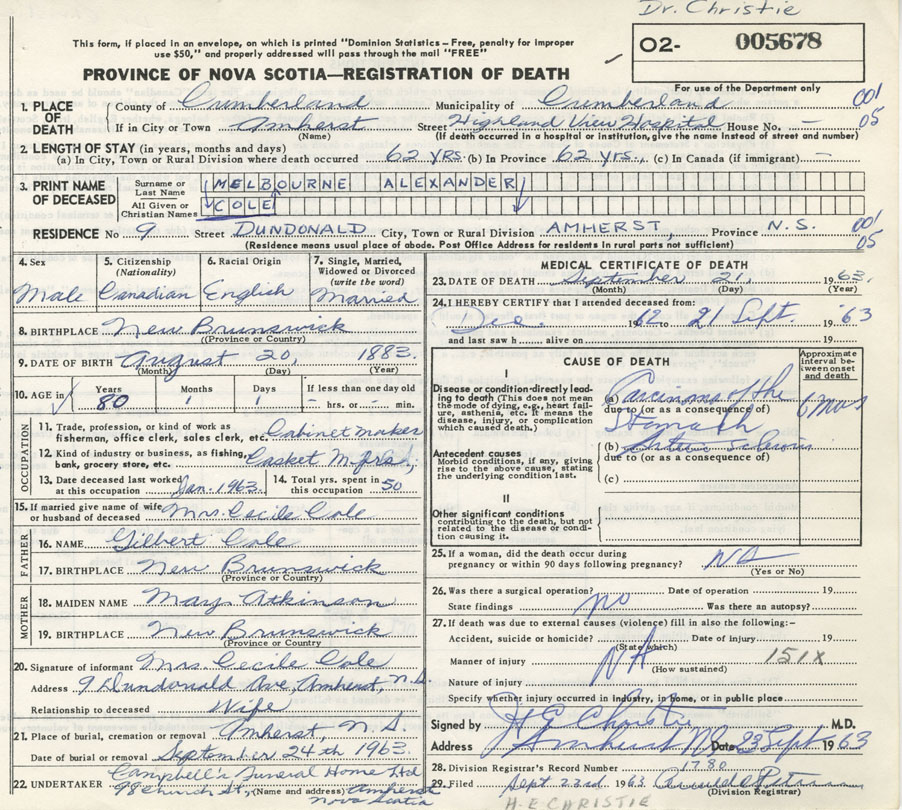 Dr. Christie
This form, if placed in an envelope, on which is printed "Dominion Statistics – Free, penalty for improper
use $50," and properly addressed will pass through the mail "FREE"
02- 005678
PROVINCE OF NOVA SCOTIA—REGISTRATION OF DEATH
For use of the Department only
1. PLACE OF DEATH County of Cumberland Municipality of Cumberland 001
If in City or Town Amherst Street Highland View Hospital House No. – 05
(Name) (If death occurred in a hospital or institution, give name instead of street and number)
2. LENGTH OF STAY (in years, months and days)
(a) In City, Town or Rural Division where death occurred 62 YRS. (b) In Province 62 YRS., (c) In Canada (if immigrant) –
3. PRINT NAME OF DECEASED Surname or Last Name MELBOURNE ALEXANDER
All Given or Christian Names COLE
RESIDENCE No 9 Street DUNDONALD City, Town or Rural Division AMHERST, Province N.S. 001
(Residence means usual place of abode. Post Office Address for residents in rural parts not sufficient) 05
4. Sex Male
5. Citizenship (Nationality) Canadian
6. Racial Origin English
7. Single, Married, Widowed or Divorced (write the word) Married
8. BIRTHPLACE New Brunswick
(Province or Country)
9. DATE OF BIRTH August 20, 1883.
(Month) (Day) (Year)
10. AGE in Years 80 Months 1 Days 1 If less than one day old – hrs. or – min.
OCCUPATION
11. Trade, profession, or kind of work as fisherman, office clerk, sales clerk, etc. Cabinet maker
12. Kind of industry or business, as fishing, bank, grocery store, etc. Casket
13. Date deceased last worked at this occupation Jan. 1963.
14. Total yrs. spent in this occupation 50
15. If married give name of wife or husband of deceased Mrs. Cecile Cole
FATHER
16. NAME Gilbert Cole
17. BIRTHPLACE New Brunswick
(Province or Country)
MOTHER
18. MAIDEN NAME Mary Atkinson
19. BIRTHPLACE New Brunswick
(Province or Country)
20. Signature of informant Mrs. Cecile Cole
Address 9 Dundonald Ave, Amherst, N.S.
Relationship to deceased Wife
21. Place of burial, cremation or removal Amherst, N.S.
Date of burial or removal September 24th 1963.
22. UNDERTAKER Campbell's Funeral Home Ltd
98 Church St., (Name and address) Amherst
Nova Scotia
MEDICAL CERTIFICATE OF DEATH
23. DATE OF DEATH September 21, 1963.
(Month) (Day) (Year)
24. I HEREBY CERTIFY that I attended deceased from:
Dec. 1962 to 21 Sept. 1963
and last saw h alive on 19
CAUSE OF DEATH
Approximate interval between onset and death
I
Disease or condition directly leading to death (This does not mean the mode of dying, e.g., heart failure, asthenia, etc. It means the disease, injury, or complication which caused death.)
(a) Carcinoma of the Stomach 6 mos
due to (or as a consequence of)
Antecedent causes
Morbid conditions, if any, giving rise to the above cause, stating the underlying condition last.
(b)
due to (or as a consequence of)
(c)
II
Other significant conditions contributing to the death, but not related to the disease or condition causing it.
25. If a woman, did the death occur during pregnancy or within 90 days following pregnancy? NA
(Yes or No)
26. Was there a surgical operation? Date of operation 19
State findings no Was there an autopsy?
27. If death was due to external causes (violence) fill in also the following:-
Accident, suicide or homicide? Date of injury 19
(State which)
Manner of injury NA 151X
(How sustained)
Nature of injury
Specify whether injury occurred in industry, in home, or in public place
Signed by H E Christie M.D.
Address Amherst NS Date 23 Sept 1963
28. Division Registrar's Record Number 1780
29. Filed Sept 23rd 1963
(Division Registrar)
H.E. CHRISTIE